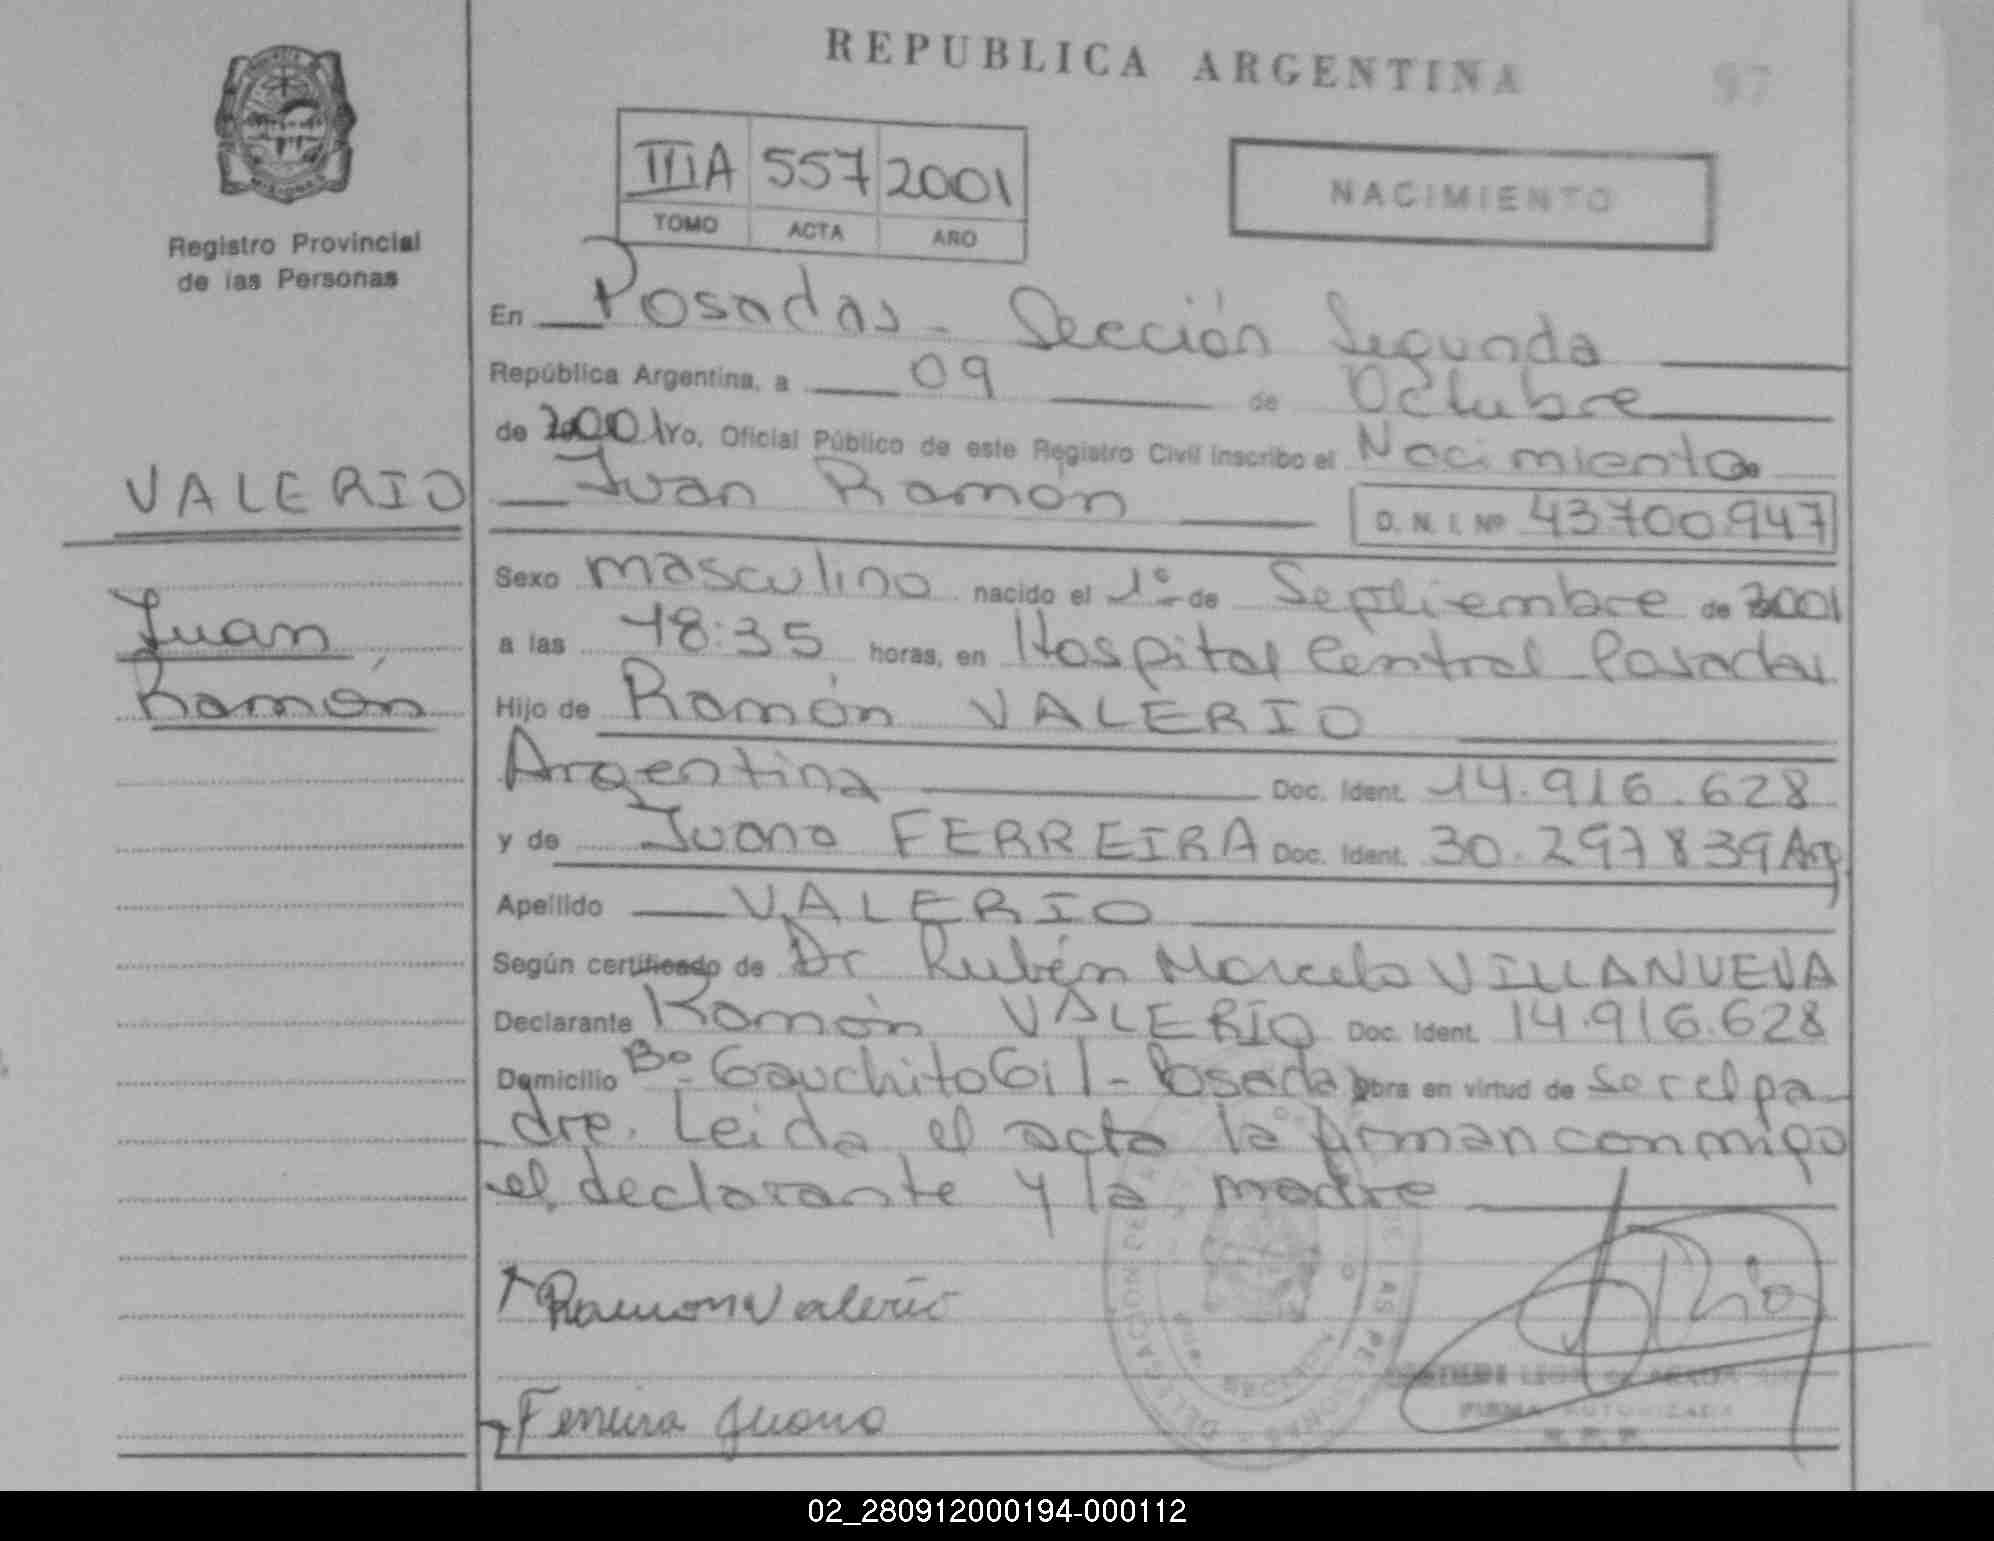 REPUBLICA ARGENTINA
97
Registro Provincial
de las Personas
IIIA 557 2001
TOMO ACTA AÑO
NACIMIENTO
En Posadas - Sección Segunda
República Argentina, a 09 de Octubre
de 2001 Yo, Oficial Público de este Registro Civil inscribo el Nacimiento de
VALERIO
Juan Ramón D. N. I. Nº 43700947
Juan
Ramón
Sexo masculino nacido el 1º de Septiembre de 2001
a las 18:35 horas, en Hospital Central Posadas
Hijo de Ramón VALERIO
Argentina Doc. Ident. 14.916.628
y de Juana FERREIRA Doc. Ident. 30.297839 Arg
Apellido VALERIO
Según certificado de Dr Rubén Marcelo VILLANUEVA
Declarante Ramón VALERIO Doc. Ident. 14.916.628
Domicilio Bº Gauchito Gil - Posadas obra en virtud de ser el pa-
dre. Leida el acta la firman conmigo
el declarante y la madre
Ramon Valerio
Ferreira Juana
FIRMA AUTORIZADA
R. P. P.
02_280912000194-000112